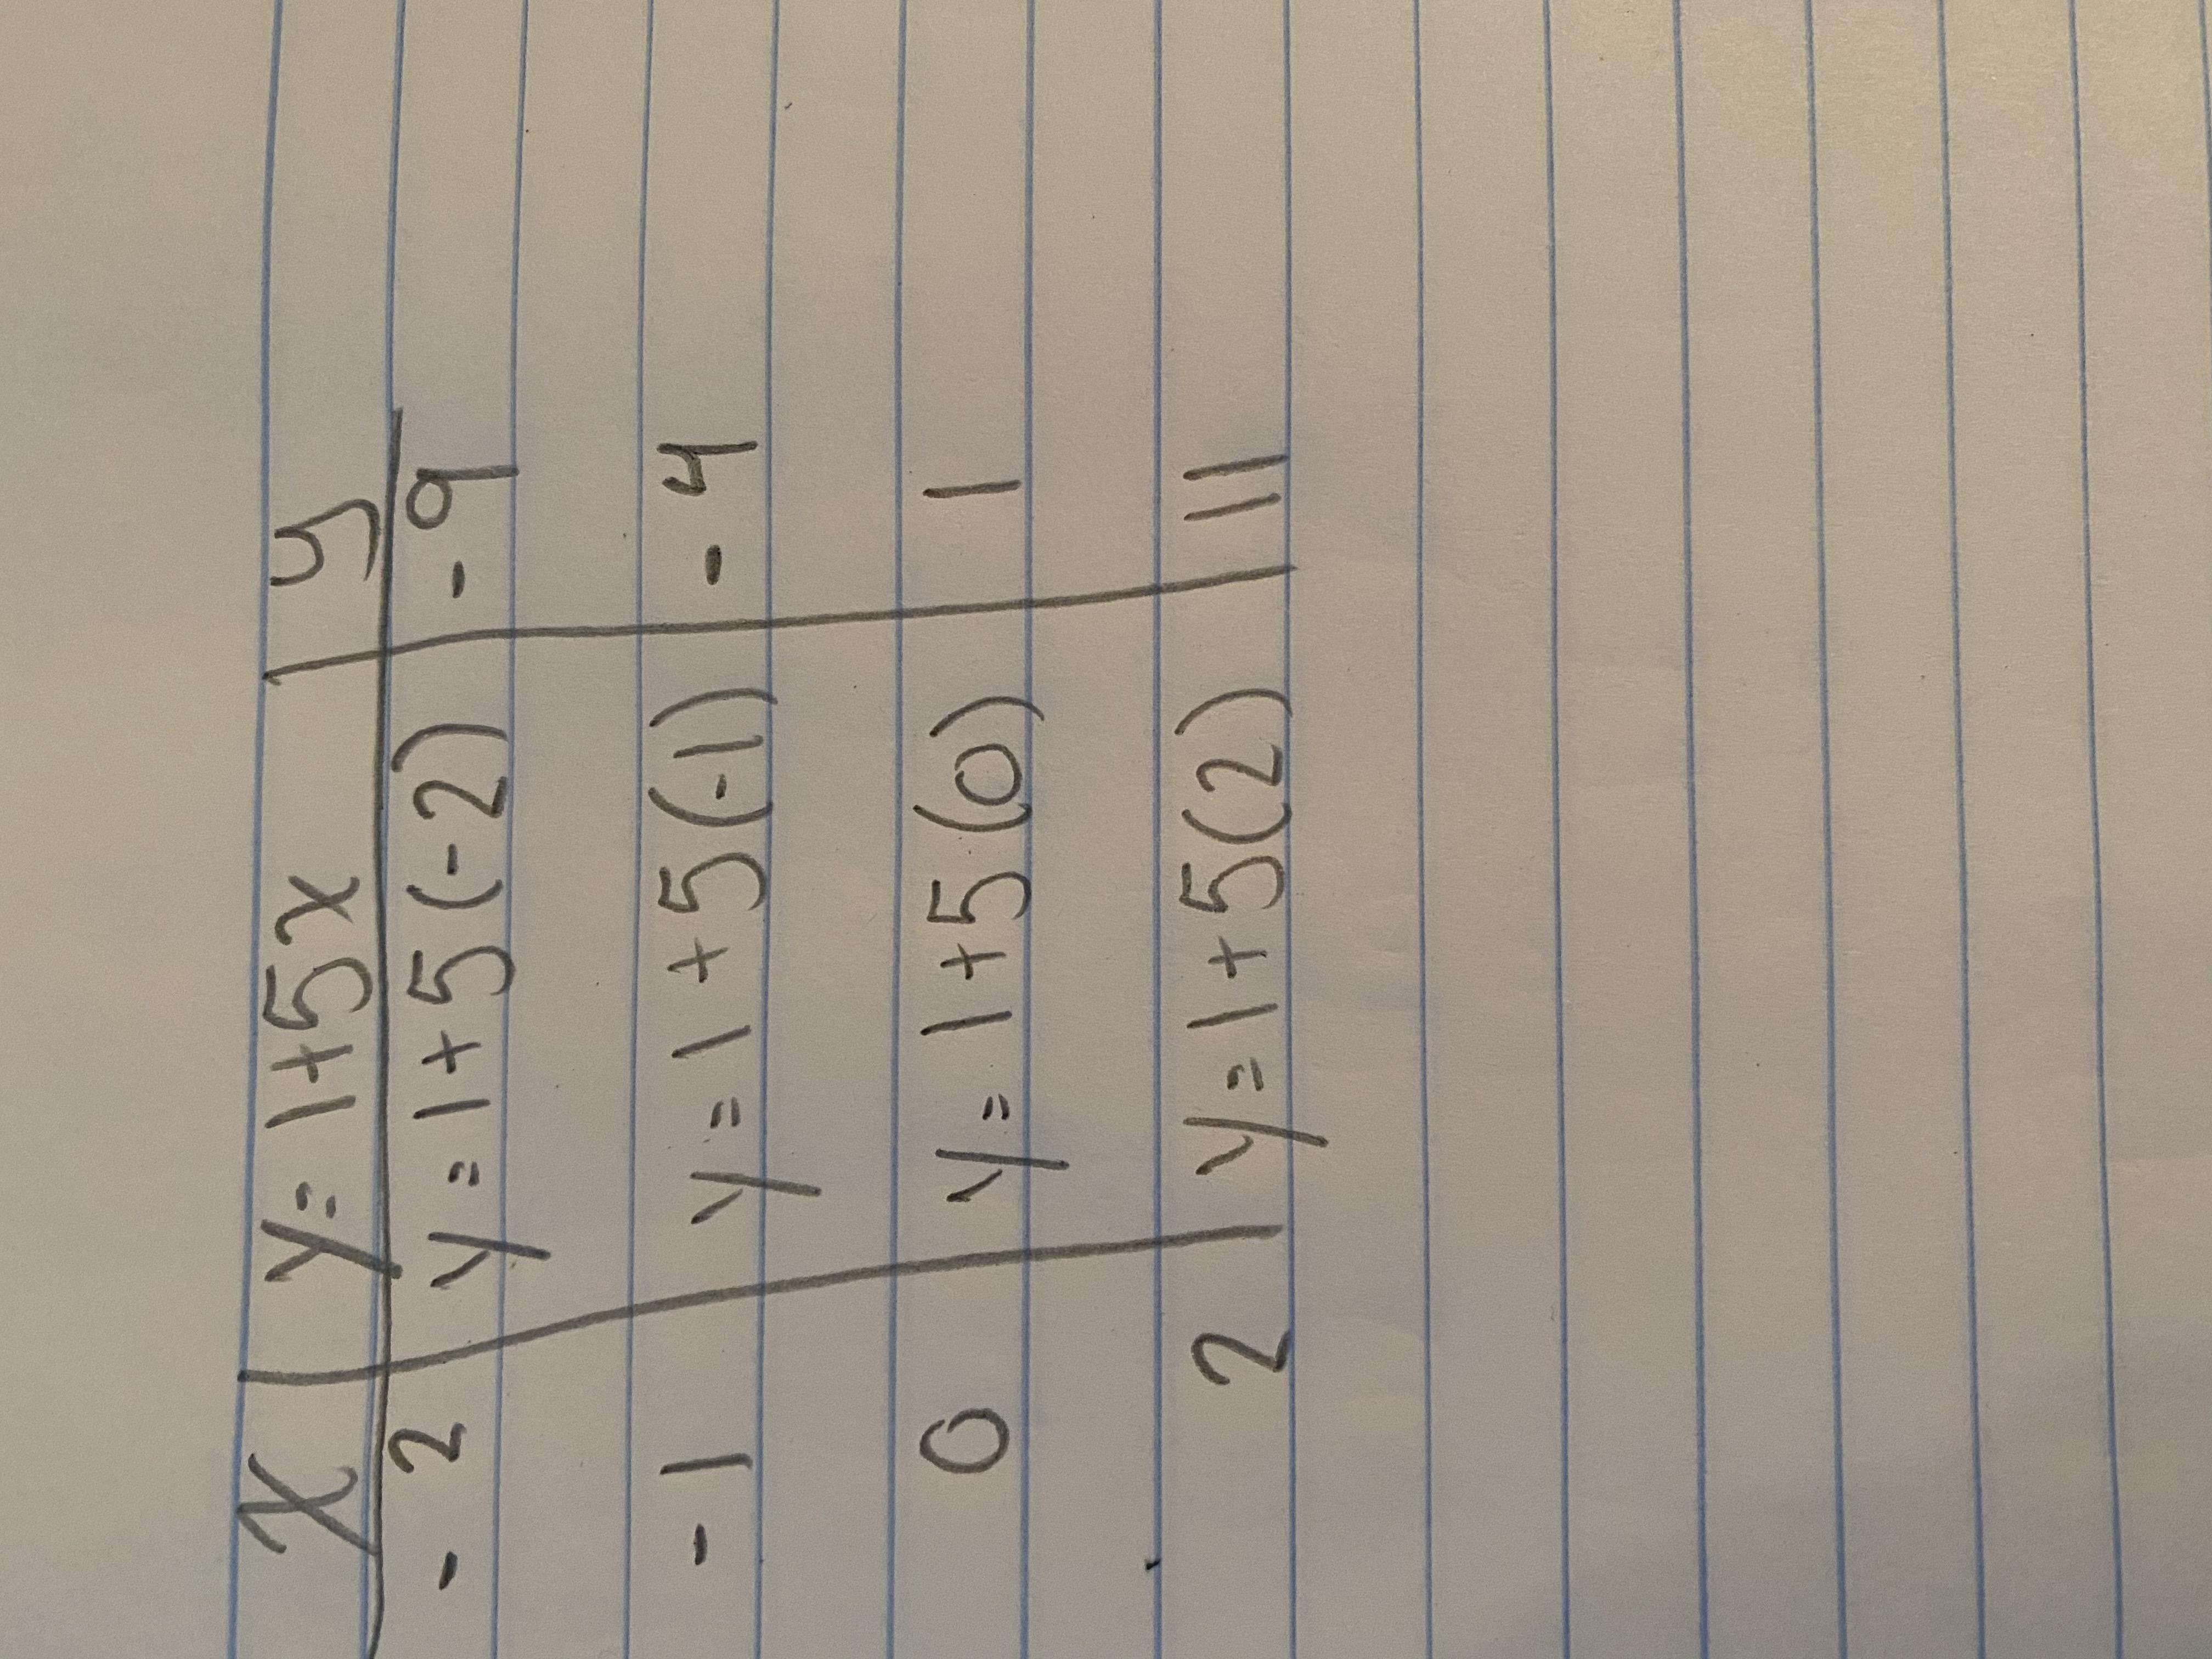 x y = 1+5x y
-2 y = 1+5(-2) -9
-1 y = 1+5(-1) -4
0 y = 1+5(0) 1
2 y = 1+5(2) 11